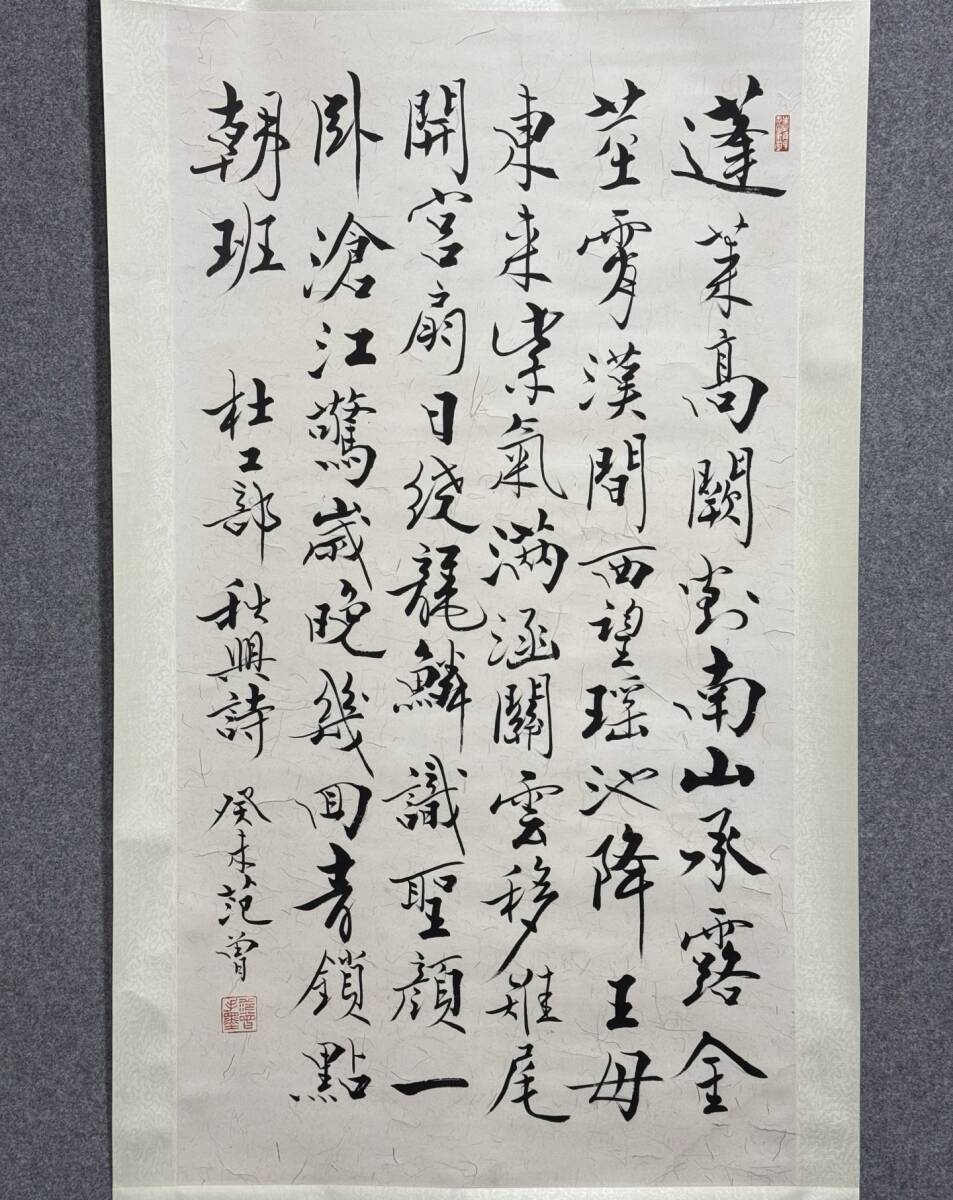 蓬萊高闕對南山承露金
莖霄漢間西望瑶池降王母
東来紫氣滿涵關雲移雉尾
開宮扇日绕龍鱗識聖顔一
臥滄江驚歲晚幾回青鎖點
朝班 杜工部秋興詩 癸未范曾